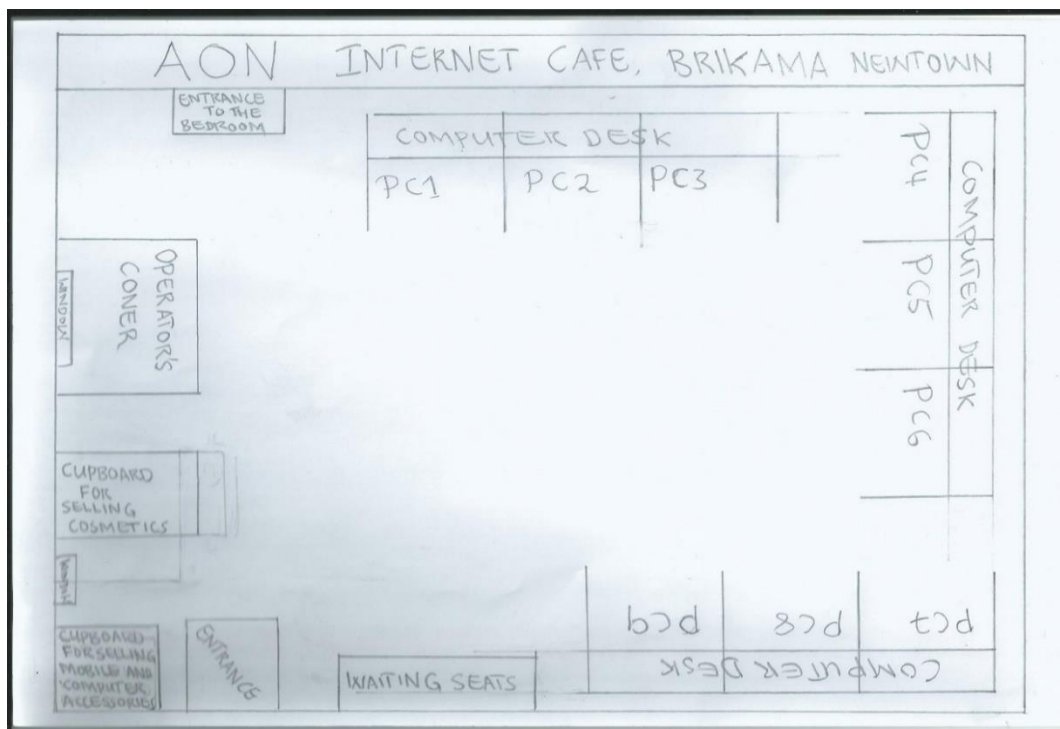 AON INTERNET CAFE, BRIKAMA NEWTOWN
ENTRANCE
TO THE
BEDROOM
COMPUTER DESK
PC1 PC2 PC3
PC4
PC5
PC6
COMPUTER DESK
OPERATOR'S
CONER
WINDOW
CUPBOARD
FOR
SELLING
COSMETICS
WINDOW
CUPBOARD
FOR SELLING
MOBILE AND
COMPUTER
ACCESSORIES
ENTRANCE
WAITING SEATS
PC7 PC8 PC9
COMPUTER DESK